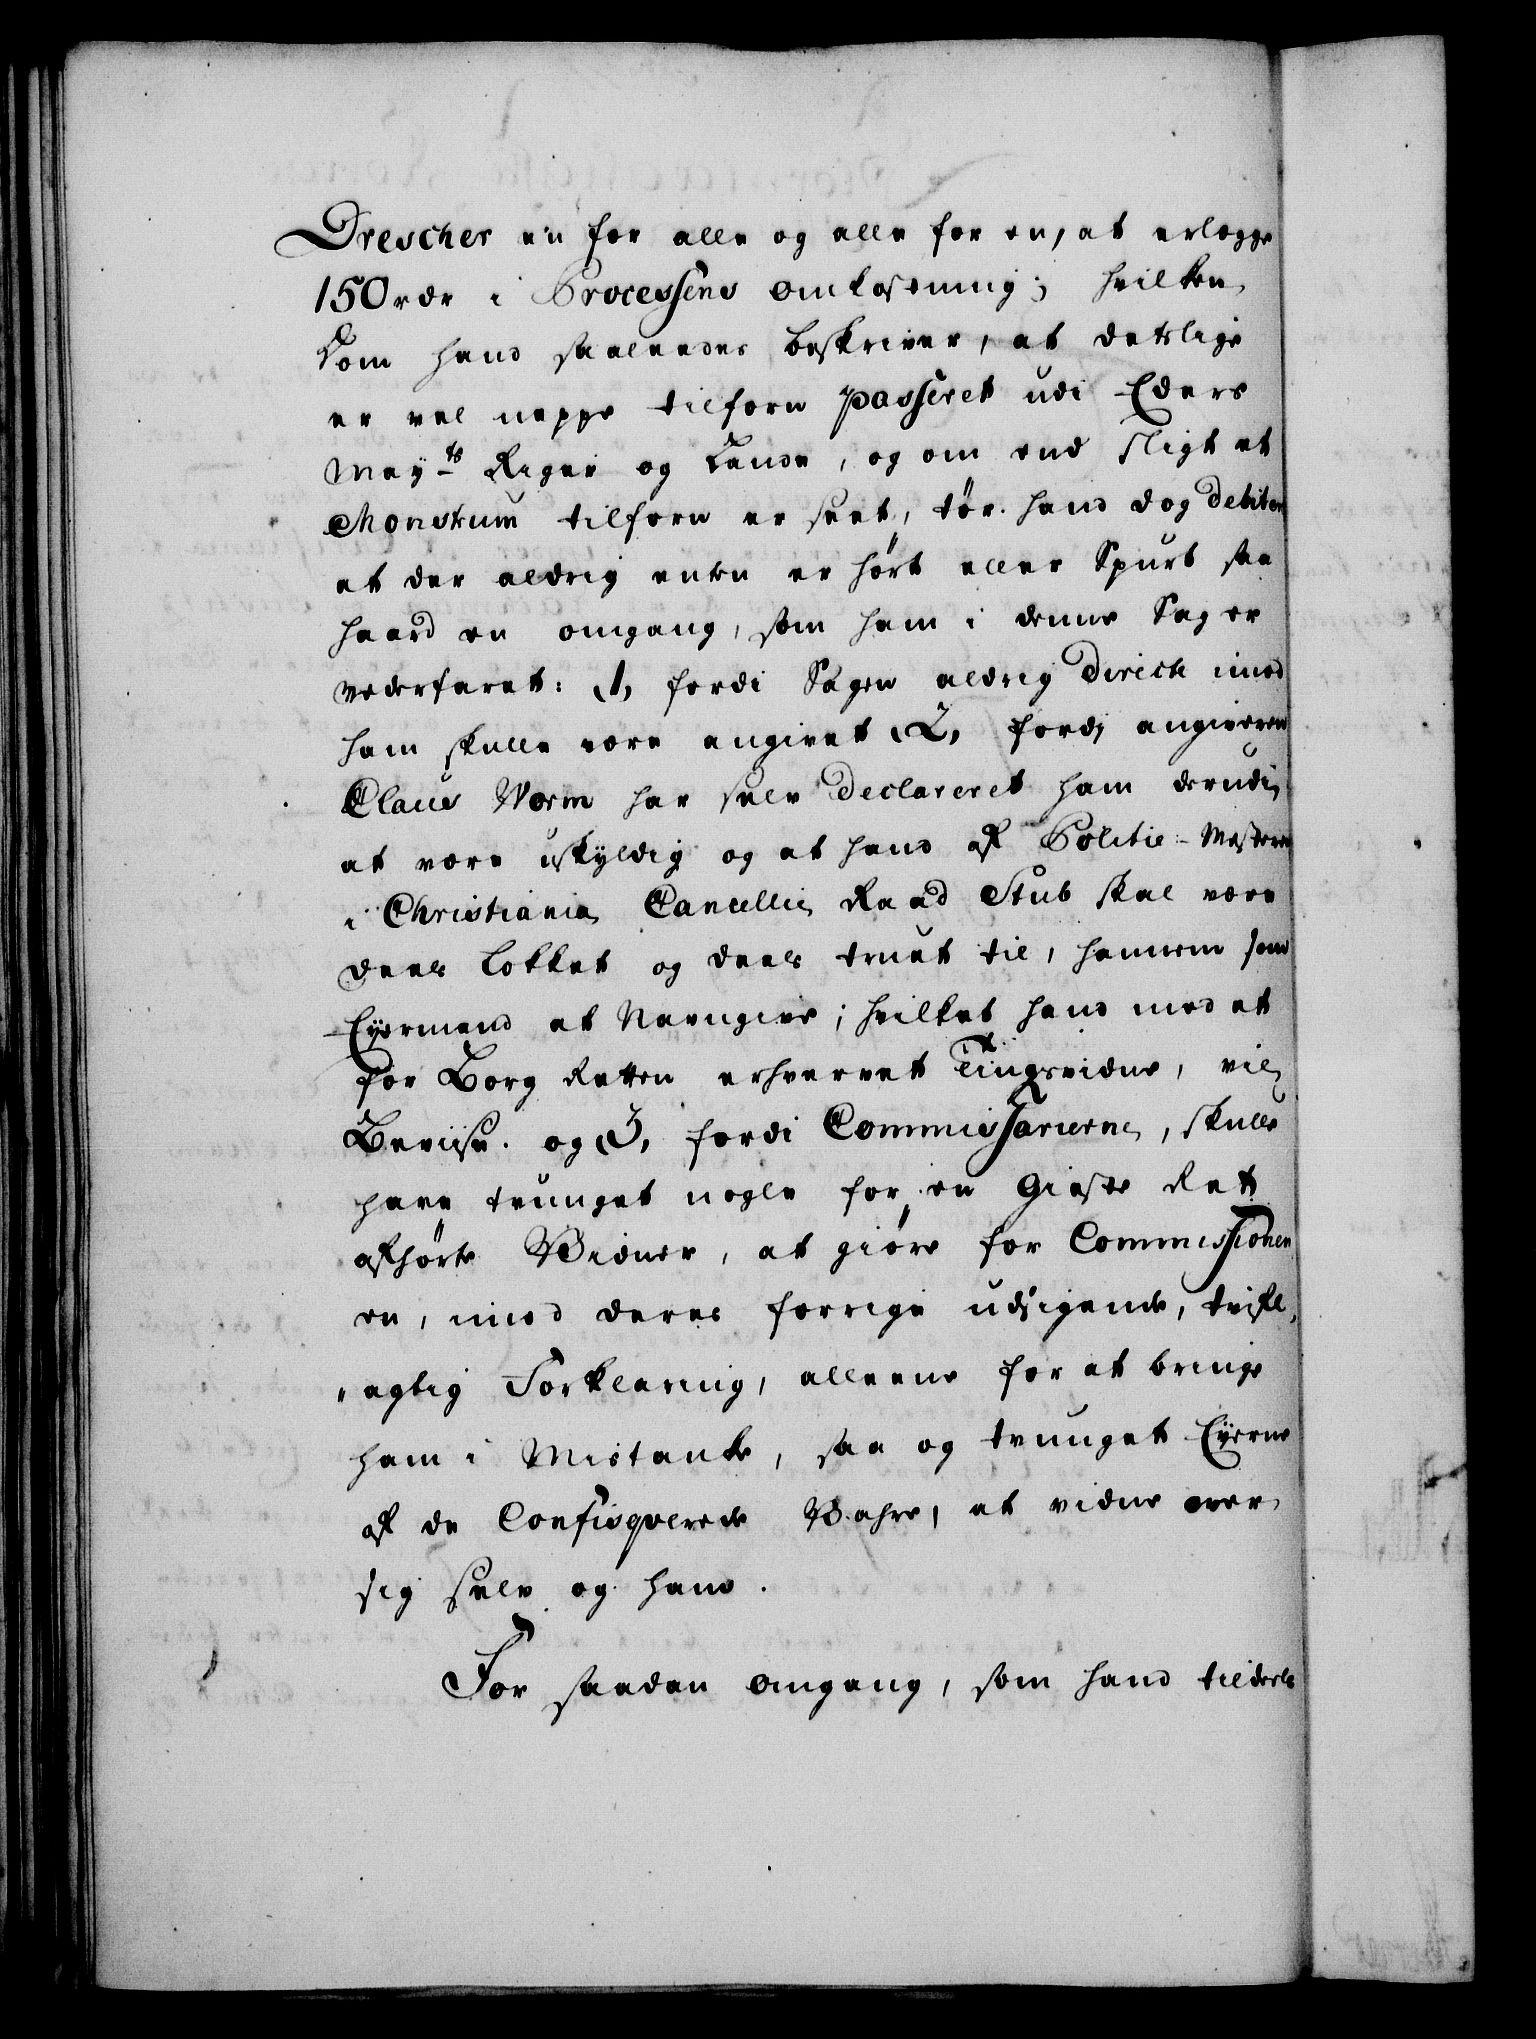 Drescher en for alle og alle for en, at erlegge
150 rdr i Processens omkostning; hvilken
Dom hand saaleedes beskriver, at detslige
er vel neppe tilforn passeret udi Eders
May:ts Riger og Lande, og om end sligt et
Monstrum tilforn er seet, tør hand dog debitere
at der aldrig enten er hørt eller Spurt saa
haard en omgang, som ham i denne Sag er
vederfaret: 1, fordi Sagen aldrig Directe imod
ham skulle være angivet 2, fordi angiveren
Claus Worm har selv declareret ham derudi
at være uskyldig og at hand af Politie-Mesteren
i Christiania Cancellie Raad Stub skal være
deels lokket og deels truet til, hannem som
Eyermand at Navngive; hvilket hand med et
for Borg Retten erhvervet Tingsvidne, vil
Beviise. og 3, fordi Commissarierne, skulle
have tvunget nogle for en Gieste Ret
afhørte Vidner, at giøre for Commissionen
en, imod deres forrige udsigende, tvifl,
„agtig Forklaring, alleene for at bringe
ham i Mistanke, saa og tvunget Eyerne
af de Confisqverede Wahre, at vidne over
sig selv og ham.
For saadan omgang, som hand tildeels